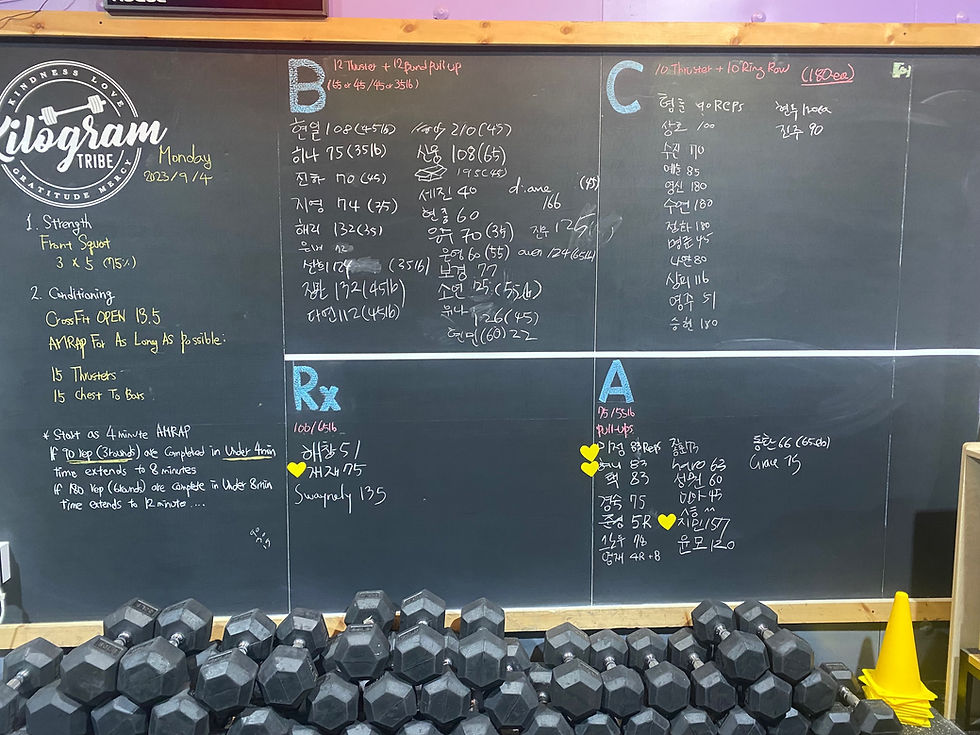 KINDNESS LOVE
Kilogram
TRIBE
GRATITUDE MERCY
Monday
2023/9/4
1. Strength
Front Squat
3 x 5 (75%)
2. Conditioning
CrossFit OPEN 13.5
AMRAP For As Long As possible:
15 Thrusters
15 Chest To Bars
* Start as 4 minute AMRAP
If 90 rep (3rounds) are completed in Under 4min
time extends to 8 minutes
If 180 rep (6rounds) are complete in Under 8min
time extends to 12 minute ....
B
12 Thruster + 12 Band pull up
(65 or 45 / 45 or 35lb)
현일 108 (45lb)
하나 75 (35lb)
진하 70 (45)
지영 74 (35)
해리 132 (35)
선희 124 (35lb)
132 (45lb)
다연 112 (45lb)
210 (45)
신웅 108 (65)
195 (45)
세진 40
현중 60
70 (35)
60 (55)
보경 77
소연 125 (55lb)
유나 126 (45)
현민 (60) 22
diane (45)
166
125
124 (65lb)
C
10 Thruster + 10 Ring Row (180ea)
형준 90 REPS
상호 100
수진 170
예슬 85
영신 180
수연 180
진하 180
명훈 45
나연 80
116
영주 51
승현 180
진주 90
Rx
100/65lb
51
재재 75
Swaynely 135
A
75/55lb
pull-ups
미정 83 Reps
하니 83
택 83
경숙 75
준성 5R
78
영재 4R+8
hero 63
성원 60
민아 45
지민 157
윤모 120
동환 66 (65lb)
Grace 75